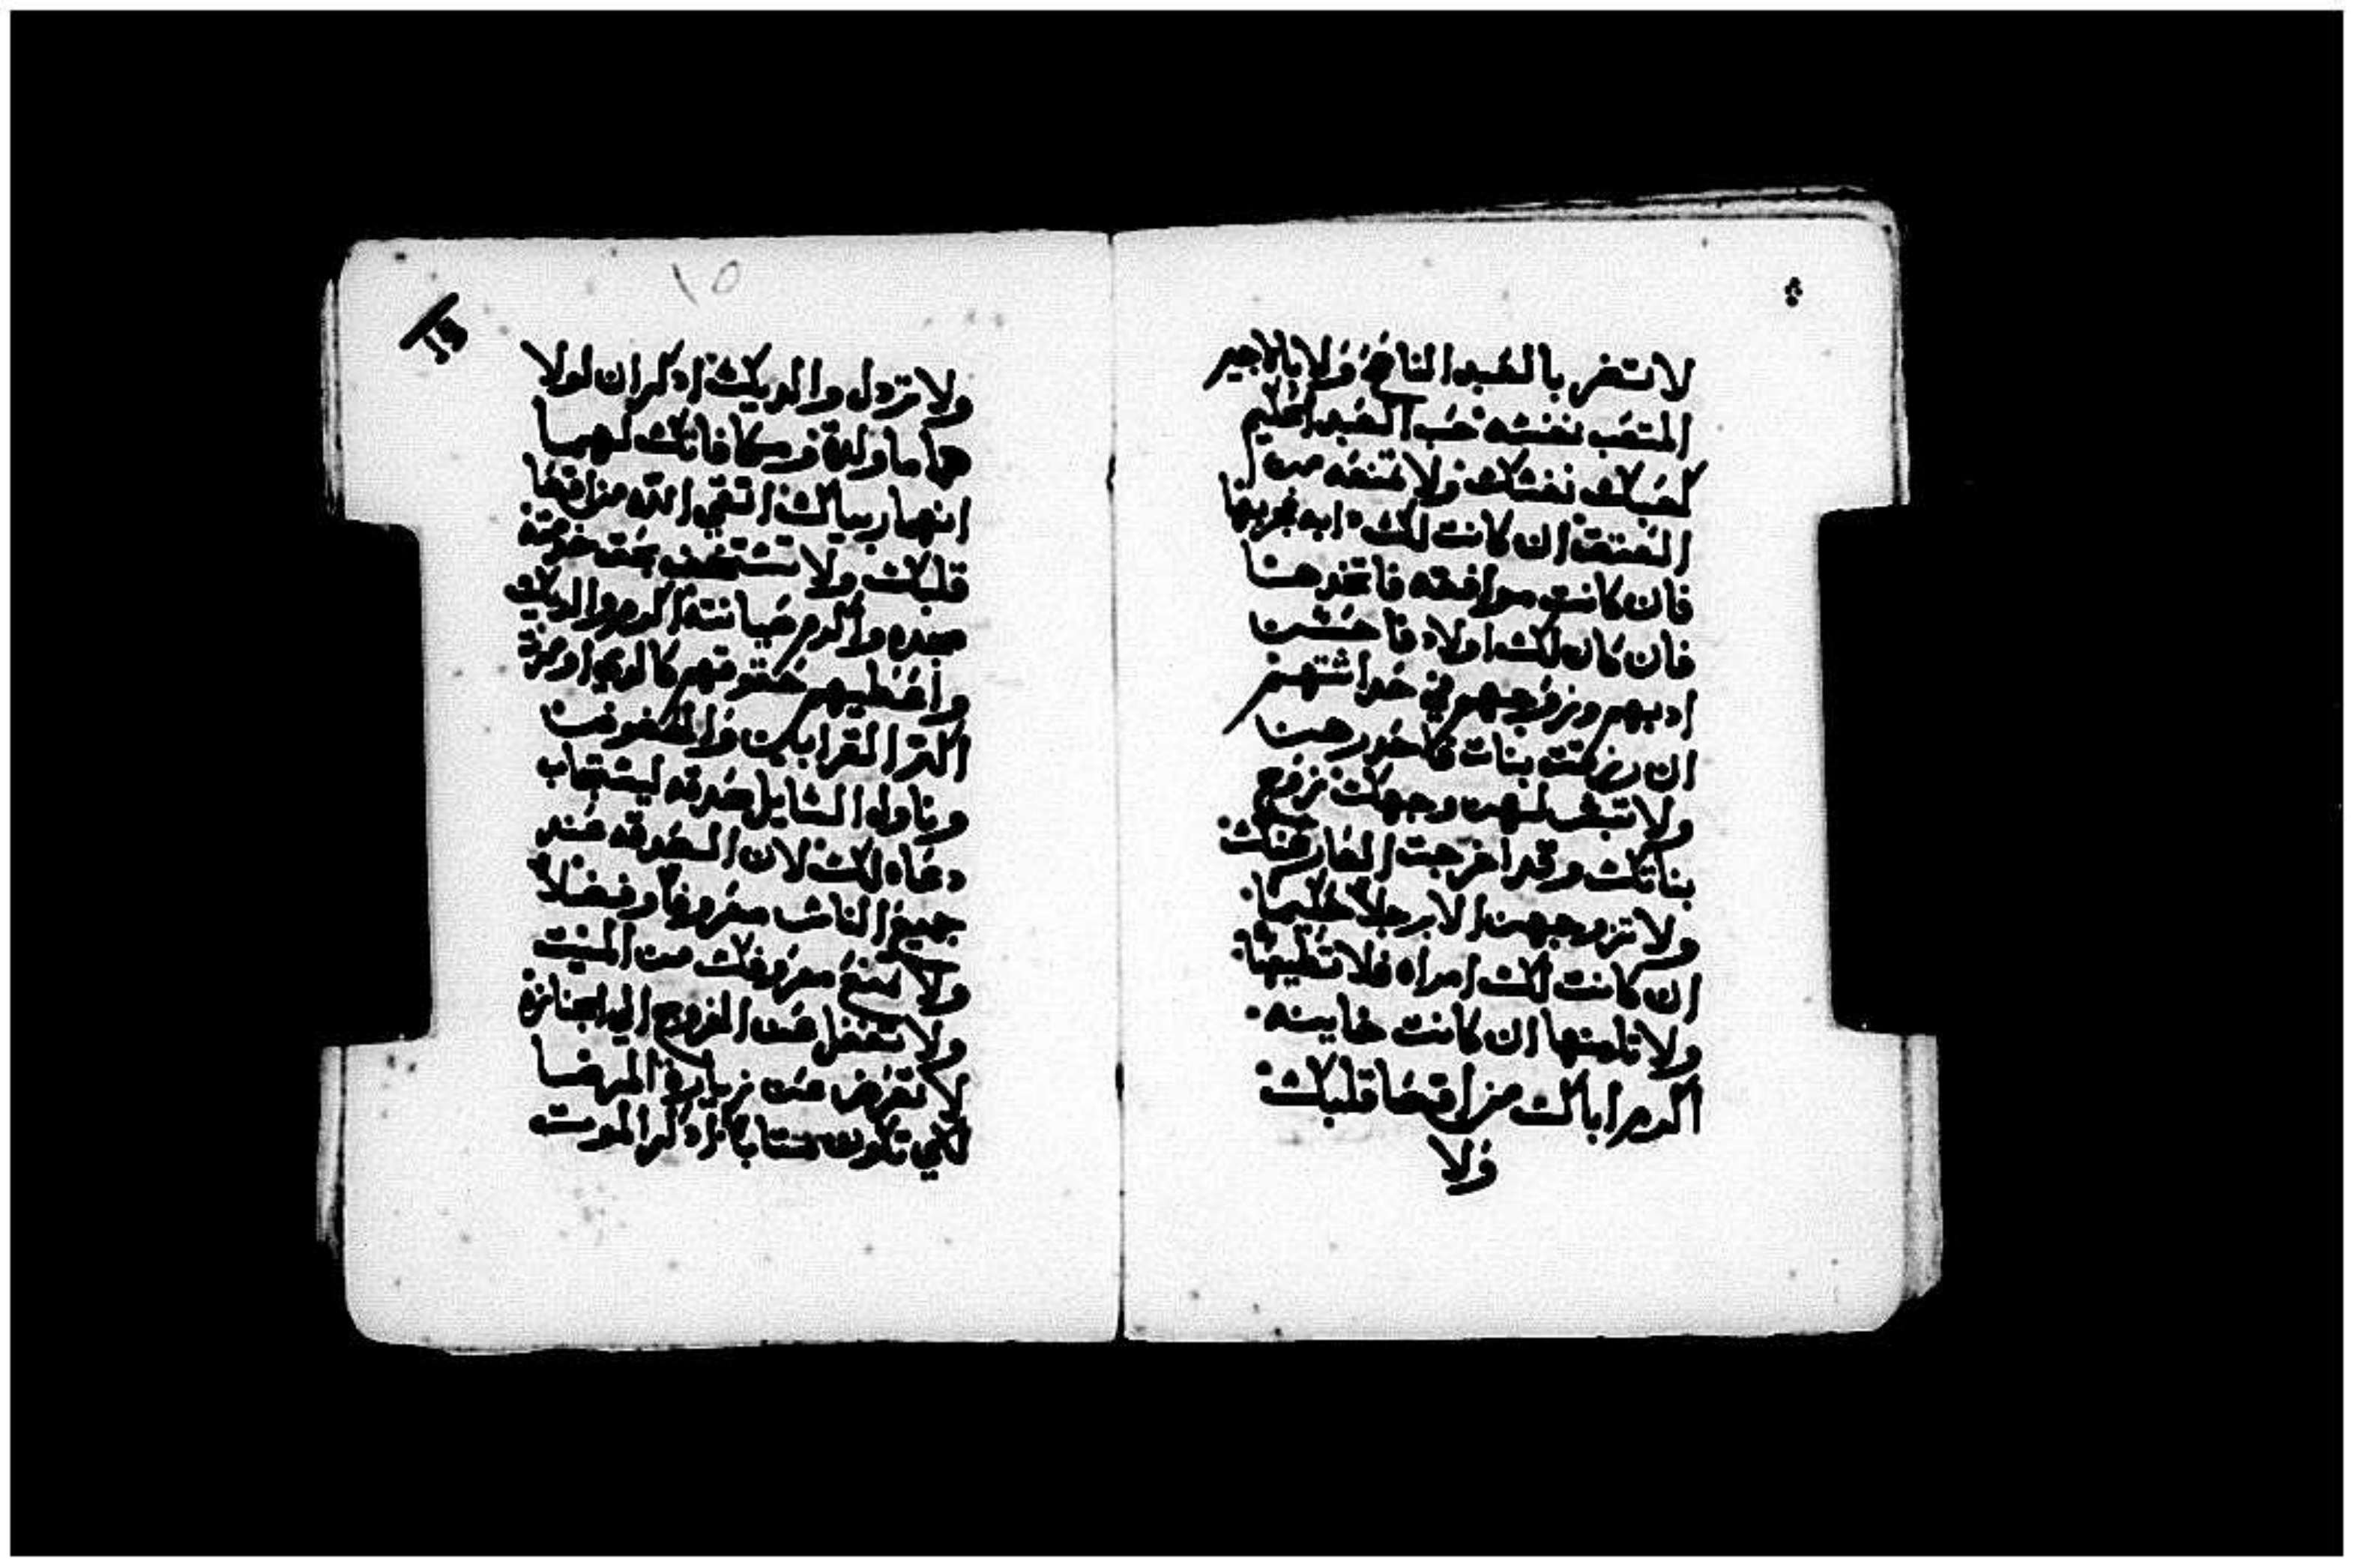 لا تضر بالعبد الناصح ولا بالاجير
المتعب نفسه حب العبد الحليم
كحبك نفسك ولا تمنعه من
العتق ان كانت لك دابه فجربها
فان كانت موافقه فاتخدها
فان كان لك اولاد فاحسن
ادبهم وزوجهم في حداثتهم
ان رزقت بنات فاحدرهن
ولا تبش لهن وجهك زوج
بناتك وقد اخرجت العار عنك
ولا تزوجهن الا برجلا حليما
ان كانت لك امراه فلا تطيعها
ولا تامنها ان كانت خاينه
اكرم اباك من اقصا قلبك
ولا
١٥
ولا تزدل والديك ادكر ان لولا
هما ما ولدة فمكافاتك لهما
انهما ربياك اتقي الله من اقصا
قلبك ولا تستخف بحق خدمة
مجده واكرم صيانته اكرم والديك
واعطيهم حقوقهم كالدي اومرة
اكتر القرابين والصفوف
وناول السايل صدقه ليستجاب
دعاه لك لان الصدقه عند
جميع الناس معروفا وفضلا
ولا تمنع معروفك من الميت
ولا تغفل عن الخروج الي الجنازه
لا تعرض عن زيارة المرضا
لكي تكون متابا ادكر الموت